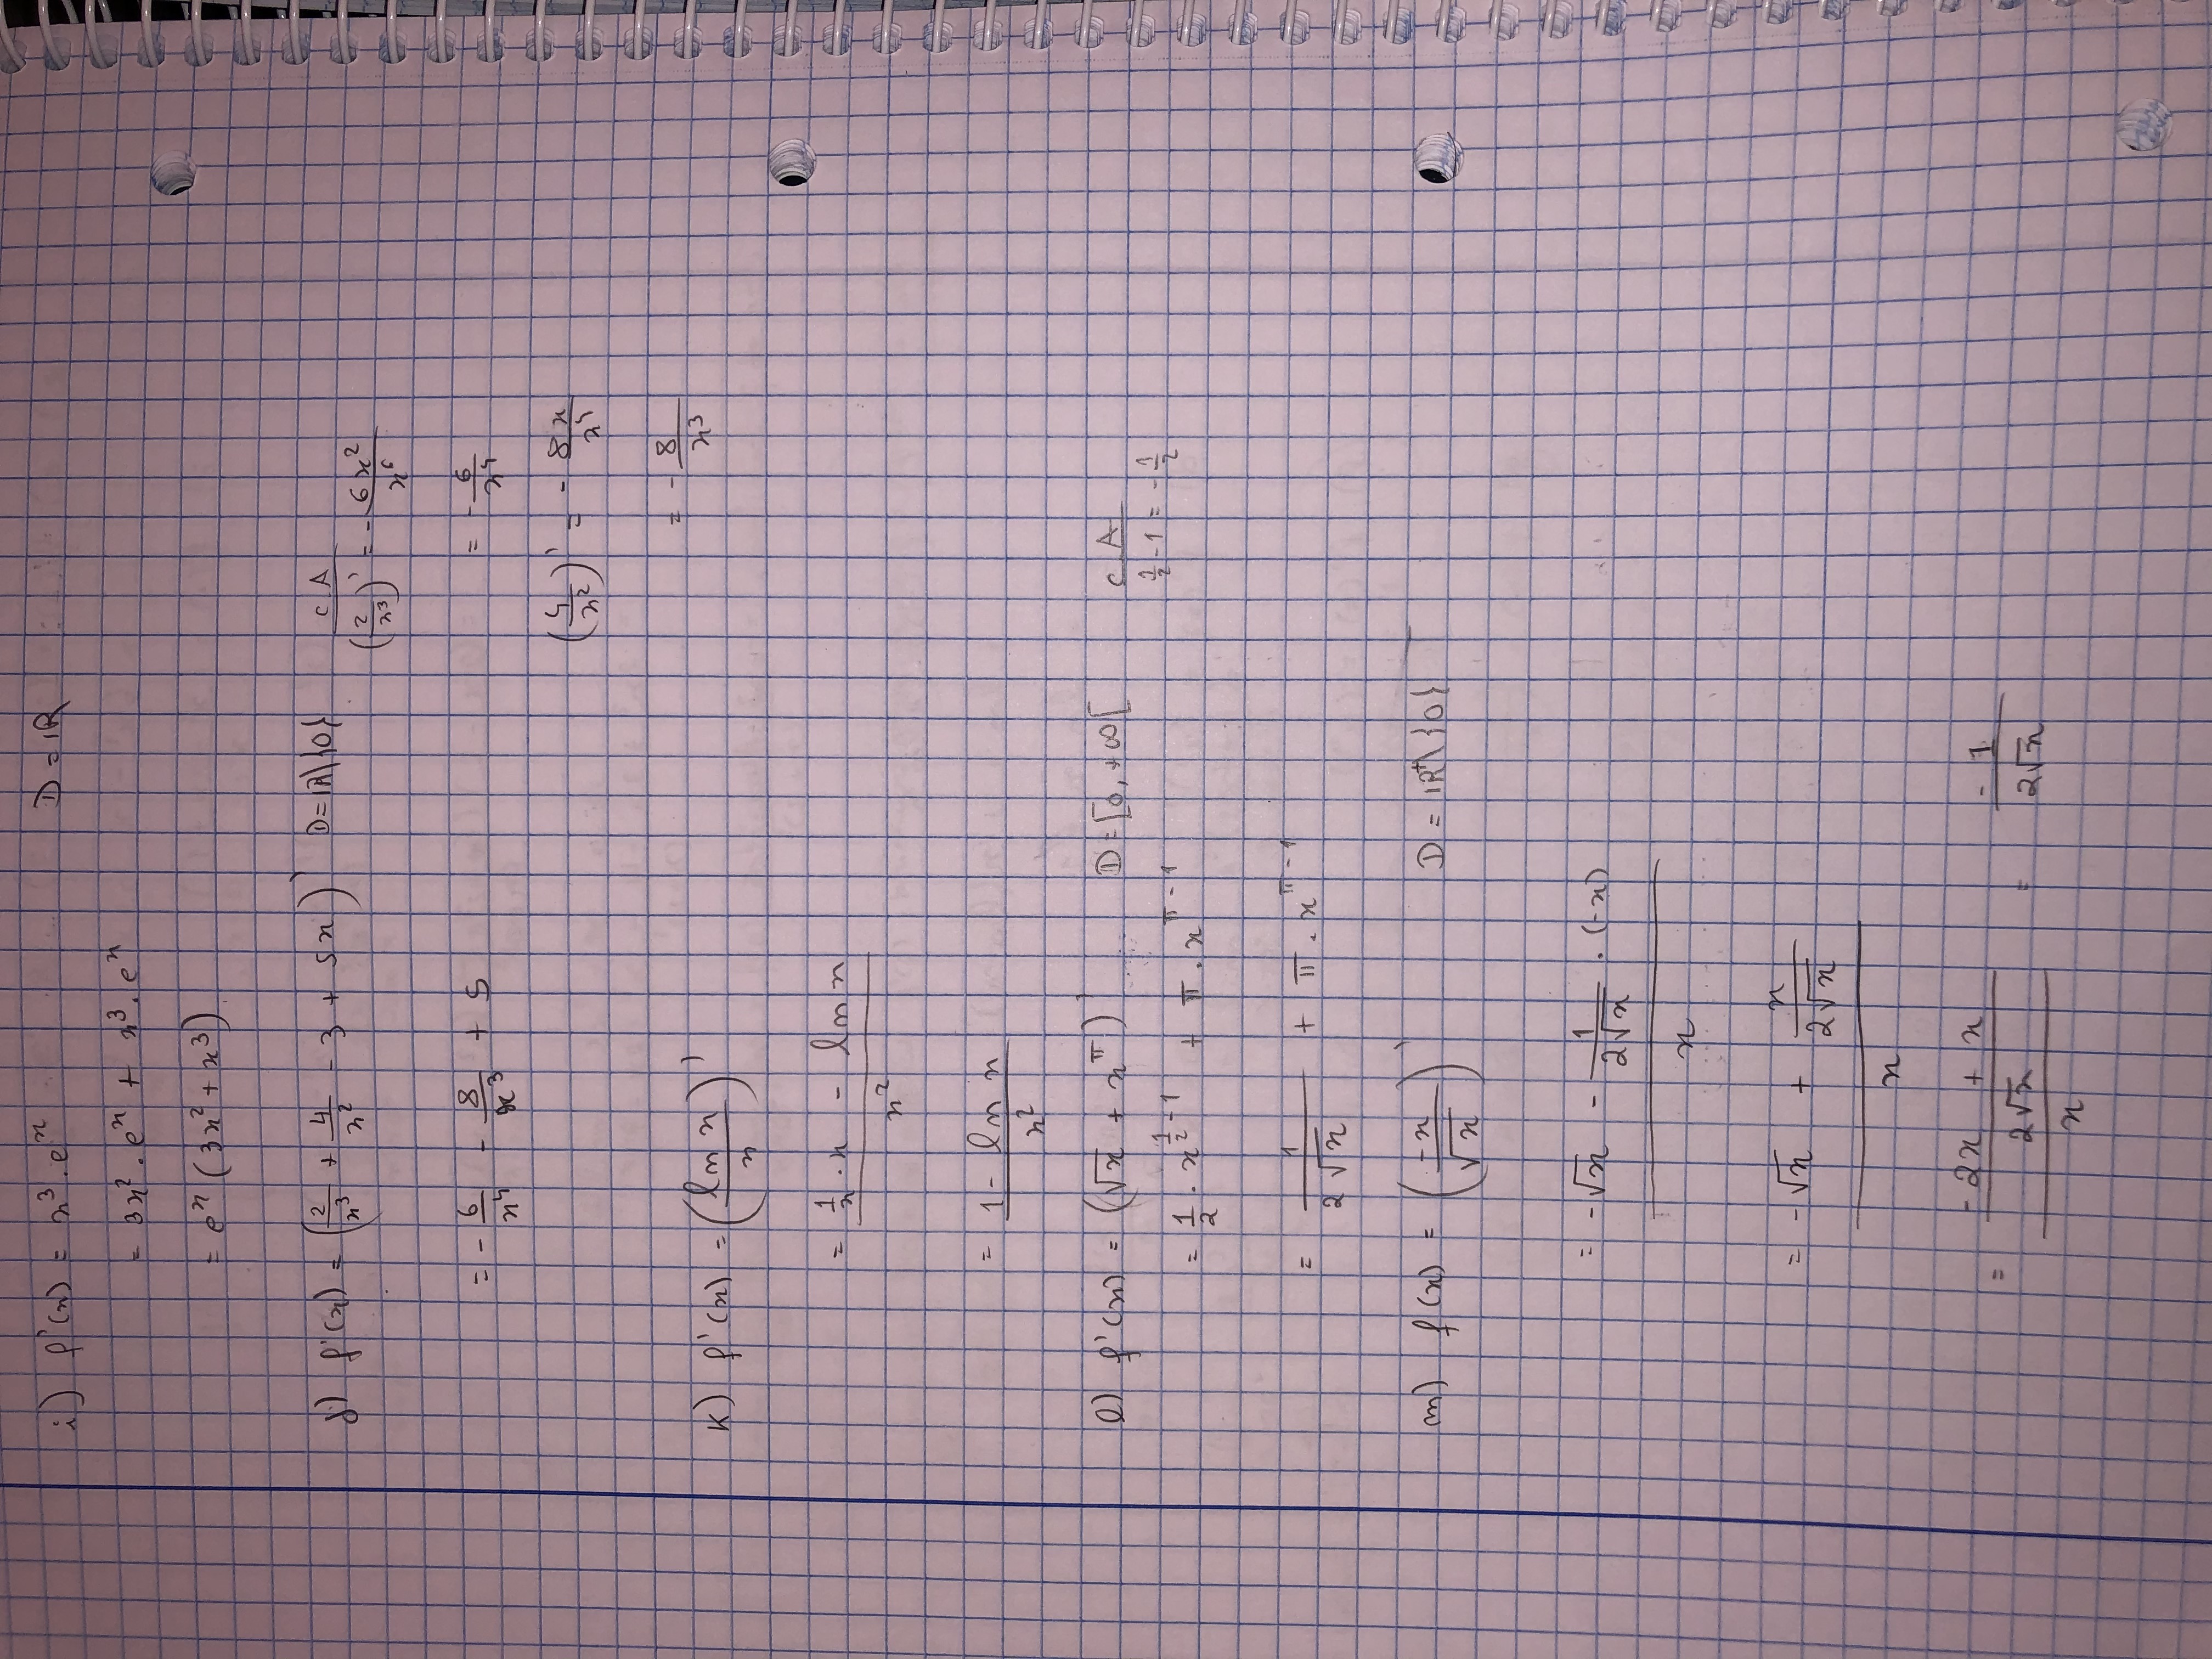 i) f'(x) = x³ . eˣ D = ℝ
= 3x² . eˣ + x³ . eˣ
= eˣ (3x² + x³)
j) f'(x) = (2/x³ + 4/x² - 3 + 5x)' D = ℝ\{0} CA
(2/x³)' = - 6x²/x⁶
= - 6/x⁴ - 8/x³ + 5 = - 6/x⁴
(4/x²)' = - 8x/x⁴
= - 8/x³
k) f'(x) = (ln x / x)'
= (1/x . x - ln x) / x²
= (1 - ln x) / x²
l) f'(x) = (√x + x^π)' D = [0, +∞[ CA
= 1/2 . x^(1/2 - 1) + π . x^(π - 1) 1/2 - 1 = - 1/2
= 1/(2√x) + π . x^(π - 1)
m) f(x) = (-x/√x)' D = ℝ⁺\{0}
= (-√x - 1/(2√x) . (-x)) / x
= (-√x + x/(2√x)) / x
= ((-2x + x)/(2√x)) / x = -1/(2√x)